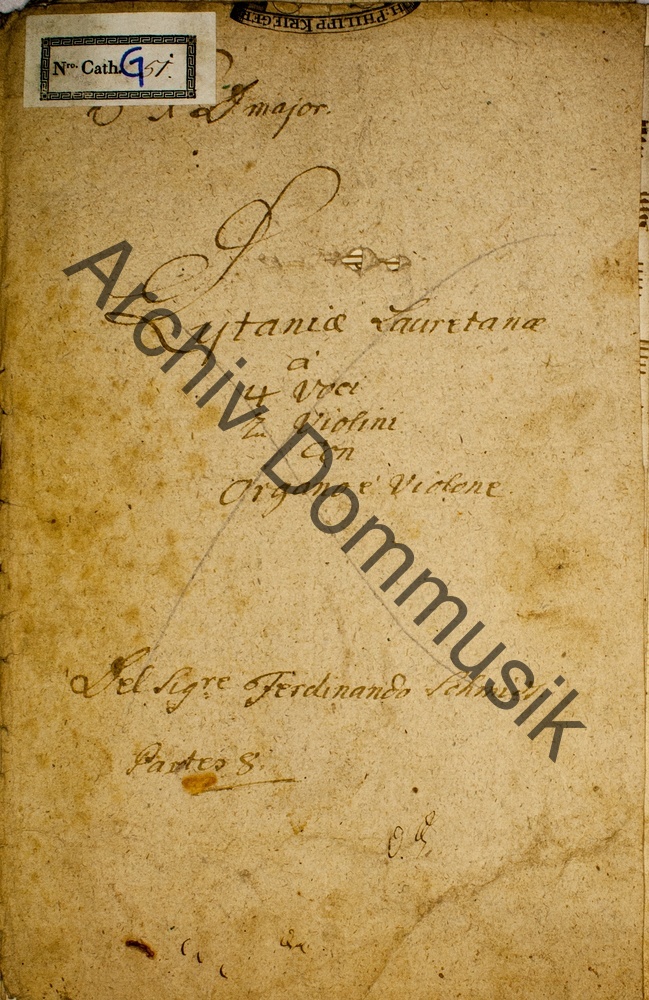 H. PHILIPP KRIEGER
Nro. Cath. G 51.
major.
Lytaniæ Lauretanæ
à
4 Voci
2 Violini
Con
Organo e Violone
Del Sigre Ferdinando Schmidt
Partes 8.
Archiv Dommusik